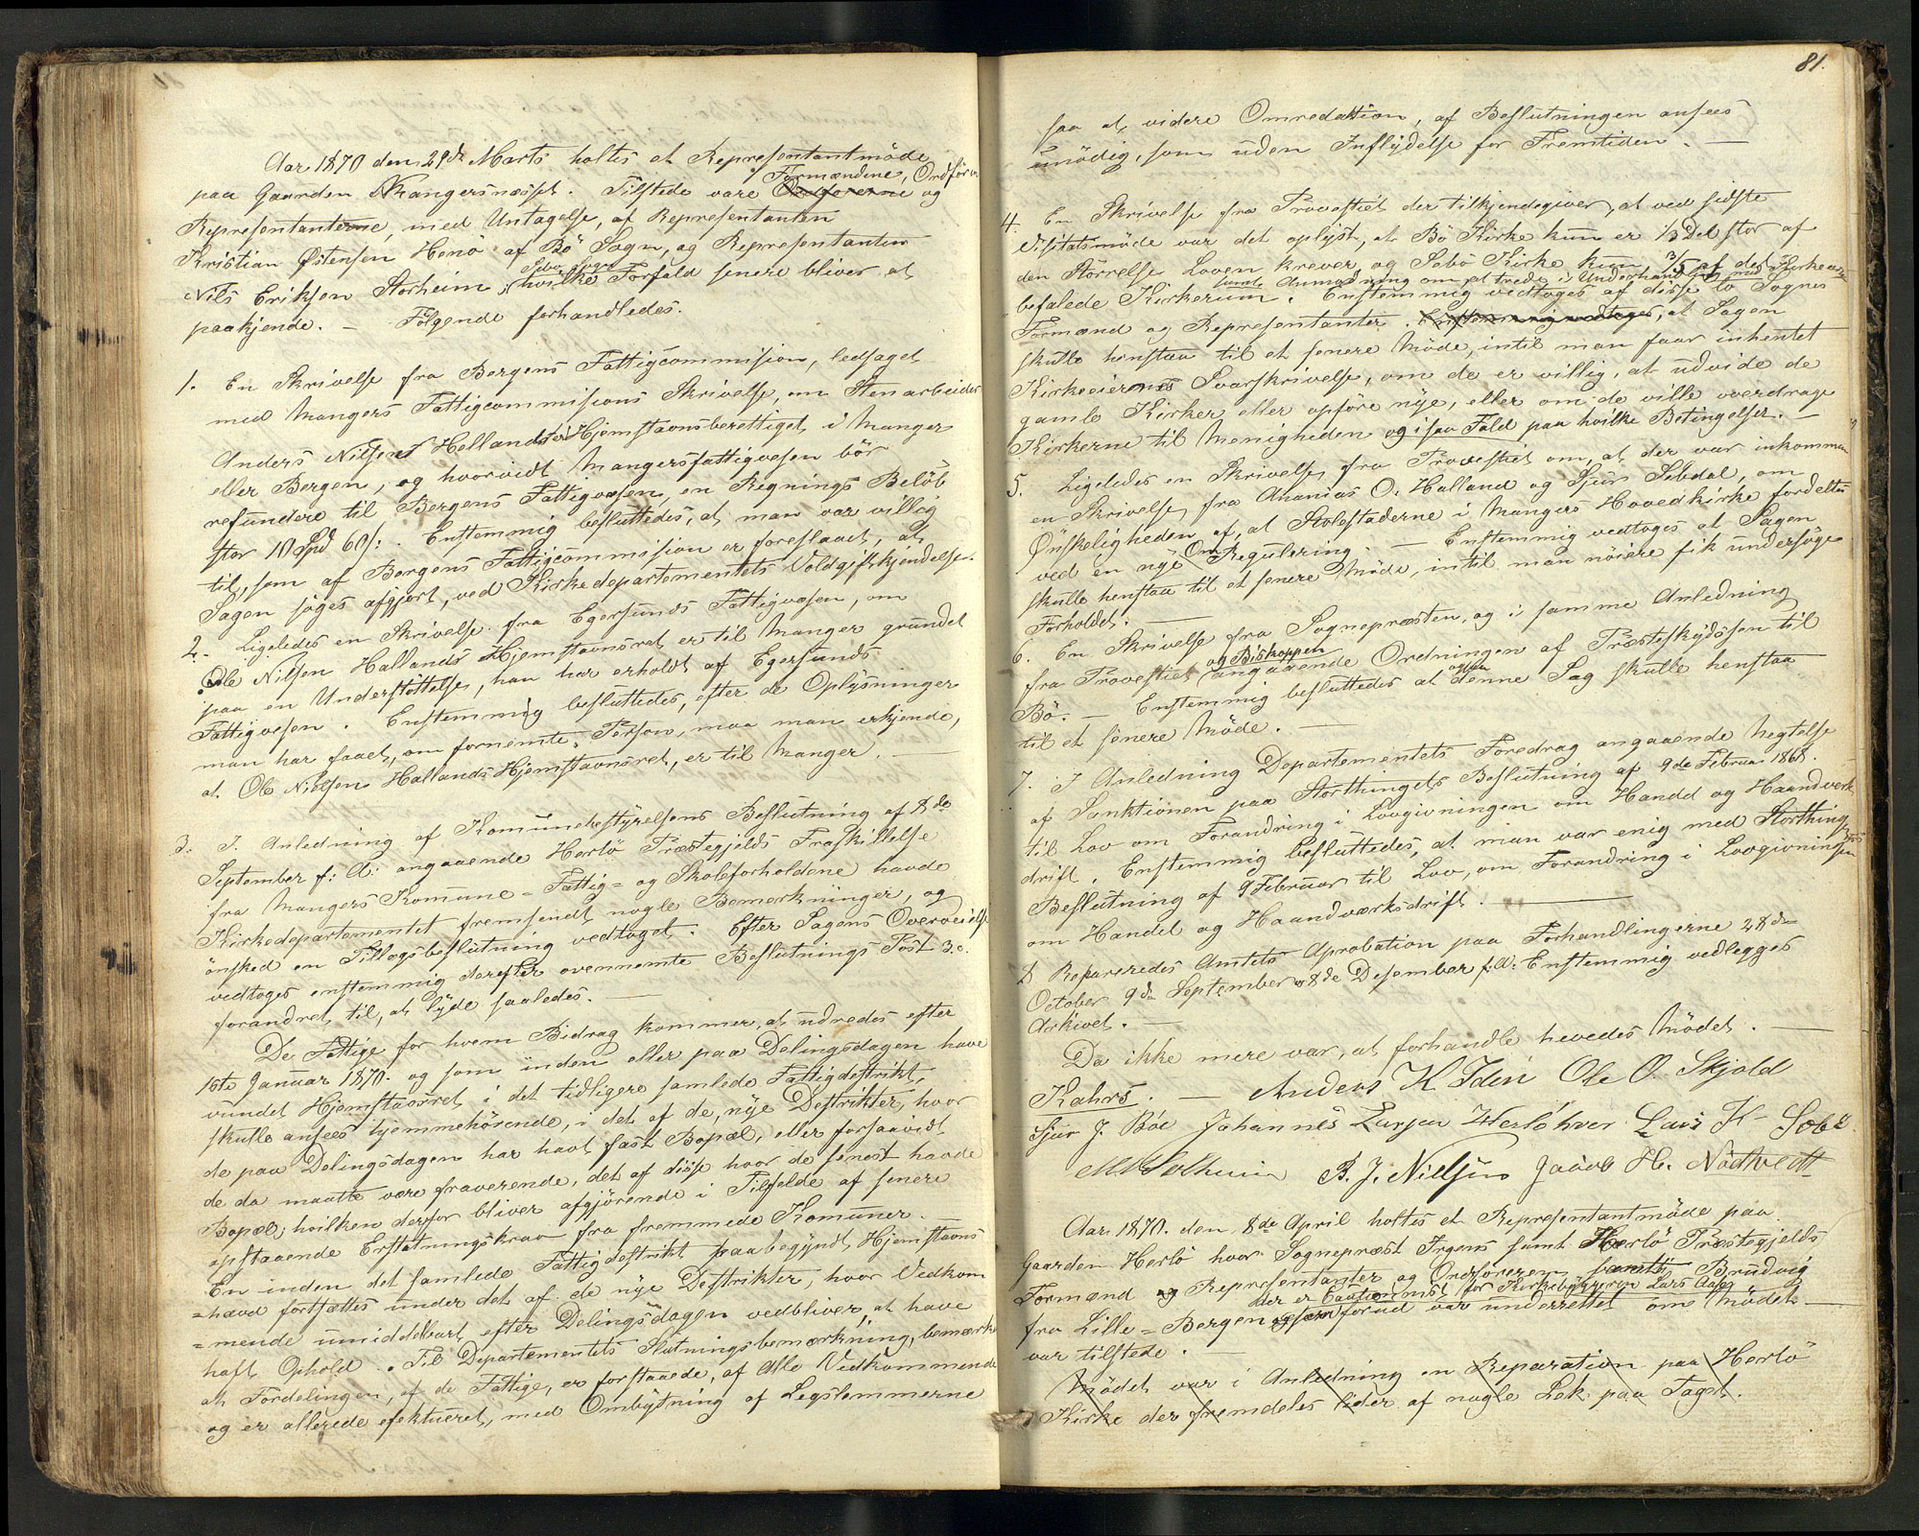 Aar 1870 den 29de Marts holtes et Repræsentantmöde
paa Gaarden Mangersnæsset. Tilstede vare Formændene, Ordföreren og
Repræsentanterne, med Untagelse, af Repræsentanten
Kristian Østensen Henö af Bö Sogn, og Repræsentanten
Nils Eriksen Storheim, hvilke Forfald senere bliver at
paakjende. — Fölgende forhandledes.
1. En Skrivelse fra Bergens Fattigcommission, ledsaget
med Mangers Fattigcommissions Skrivelse, om Stenarbeider
Anders Nilsen Hellands er Hjemstavnsberettiget i Manger
eller Bergen, og hvorvidt Mangersfattigvæsen bör
refundere til Bergens Fattigvæsen, en Regnings Belöb
stor 10 Spd 60 s:. Enstemmig besluttedes, at man var villig
til, som af Bergens Fattigcommission er foreslaaet, at
Sagen söges afgjort, ved Kirkedepartementets Voldgiftskjendelse.
2. Ligeledes en Skrivelse fra Egersunds Fattigvæsen, om
Ole Nilsen Hallands Hjemstavnsret er til Manger grundet
paa en Understöttelse, han har erholdt af Egersunds
Fattigvæsen. Enstemmig besluttedes, efter de Oplysninger
man har faaet, om fornemte Person, maa man erkjende,
at Ole Nielsen Hallands Hjemstavnsret, er til Manger. —
3. I Anledning af Komunebestyrelsens Beslutning af 8de
September f: A: angaaende Herlö Præstegjelds Fraskillelse
fra Mangers Komune = Fattig = og Skoleforholdene havde
Kirkedepartementet fremsendt nogle Bemerkninger, og
önsked en Tillægsbeslutning vedtaget. Efter Sagens Overveielse
vedtoges enstemmig derefter ovennemte Beslutnings Post 3 c.
forandret til, at lyde saaledes. —
De Fattige for hvem Bidrag kommer, at udredes efter
1ste Januar 1870. og som inden eller paa Delingsdagen have
vundet Hjemstavnsret i det tidligere samlede Fattigdistrikt,
skulle ansees hjemmehörende, i det af de, nye Destrikter, hvor
de paa Delingsdagen har havt fast Bopæl, eller forsaavidt
de da maatte være fraverende, det af disse hvor de senest havde
Bopæl; hvilken derfor bliver afgjörende i Tilfelde af senere
opstaaende Erstatningskrav fra fremmede Komuner. —
En inden det samlede Fattigdestrikt paabegyndt Hjemstavns
=hævd fortsættes under det af de nye Destrikter, hvor Vedkom
=mende umiddelbart efter Delingsdagen vedbliver at have
haft Ophold. Til Departementets Slutningsbemærkning, bemærkes
at Fordelingen, af de Fattige, er forstaaede, af Alle Vedkommende
og er allerede efektueret, med Ombytning af Legslemmerne
81.
saa at, videre Omredaktion, af Beslutningen ansees
unödig, som uden Inflydelse for Fremtiden. —
4. En Skrivelse fra Provestiet der tilkjendegiver, at ved sidste
Visitatsmöde var det oplyst, at Bö Kirke kun er 1/3 Del stor af
den Störrelse Loven krever, og Sæbö Kirke kun 3/5 af det
befalede Kirkerum. samt Anmodning om at træde i Underhandling med Kirkeeierne Enstemmig vedtoges af disse to Sognes
Formænd og Repræsentanter. Enstemmig vedtoges, at Sagen
skulle henstaa til et senere Möde, intil man faar inhentet
Kirkeeiernes Svarskrivelse, om de er villig, at udvide de
gamle Kirker eller opföre nye, eller om de ville overdrage
Kirkerne til Menigheden og i saa Fald paa hvilke Betingelser. —
5. Ligeledes en Skrivelse fra Provestiet om, at der var inkommen
en Skrivelse fra Ananias O. Halland og Sjur Sebdal, om
Önskeligheden af, at Stolestaderne i Mangers Hovedkirke fordeltes
ved en nye Om Regulering. — Enstemmig vedtoges at Sagen
skulle henstaa til et senere Möde, intil man nöiere fik undersöge
Forholdet. —
6. En Skrivelse fra Sognepræsten, og i samme Anledning
fra Provestiet og Biskoppen angaaende Ordningen af Præsteskydssen til
Bö. — Enstemmig besluttedes at ogsaa denne Sag skulle henstaa
til et senere Möde. —
7. I Anledning Departementets Foredrag angaaende Negtelse
af Sanktionen paa Storthingets Beslutning af 9de Februar 1868.
til Lov om Forandring i Lovgivningen om Handel og Haandverks
drift. Enstemmig besluttedes, at man var enig med Storthingets
Beslutning af 9 Februar til Lov, om Forandring i Lovgivningen
om Handel og Haandværksdrift. —
8 Refereredes Amtets Aprobation paa Forhandlingerne 28de
October 9de September 8de Desember f: A: Enstemmig vedlegges
Arkivet. —
Da ikke mere var, at forhandle hevedes Mödet. —
Kahrs. — Anders K Iden Ole O. Skjold
Sjur J. Böe Johannes Larsen Herlöhver Lars H Sæbö.
B. J. Nielsen Jacob H. Nödtvedt
Aar 1870. den 8de April holtes et Repræsentantmöde paa
Gaarden Herlö hvor Sognepræst Irgens samt Herlö Præstegjelds
Formænd og Repræsentanter og Ordföreren samt Brudvig
fra Lille=Bergen der er Cautionist for Kirkebygger Lars og som forud var underrettet om Mödet
var tilstede. —
Mödet var i Anledning en Reparation paa Herlö
Kirke der fremdeles lider af nogle Læk paa Taget.